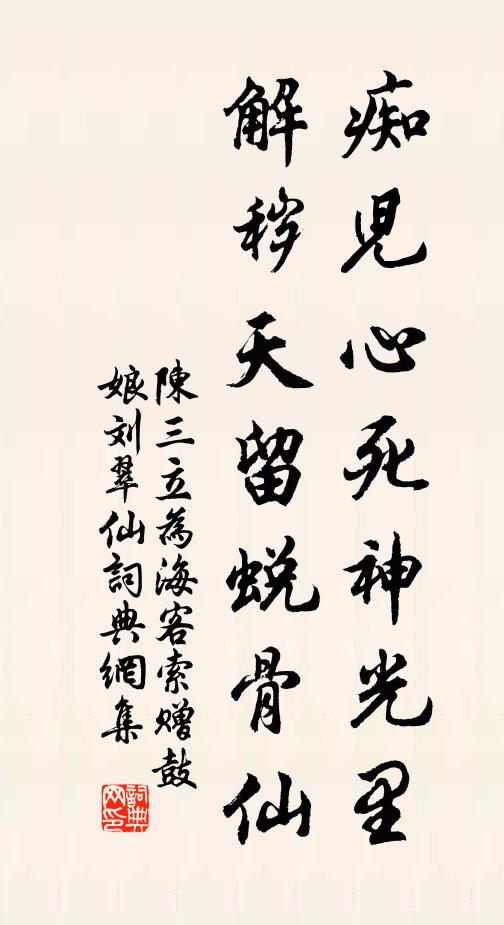 痴児心死神光里
解穢天留蛻骨仙
陳三立為海客索贈鼓
娘刘翠仙詞典網集
詞典网印